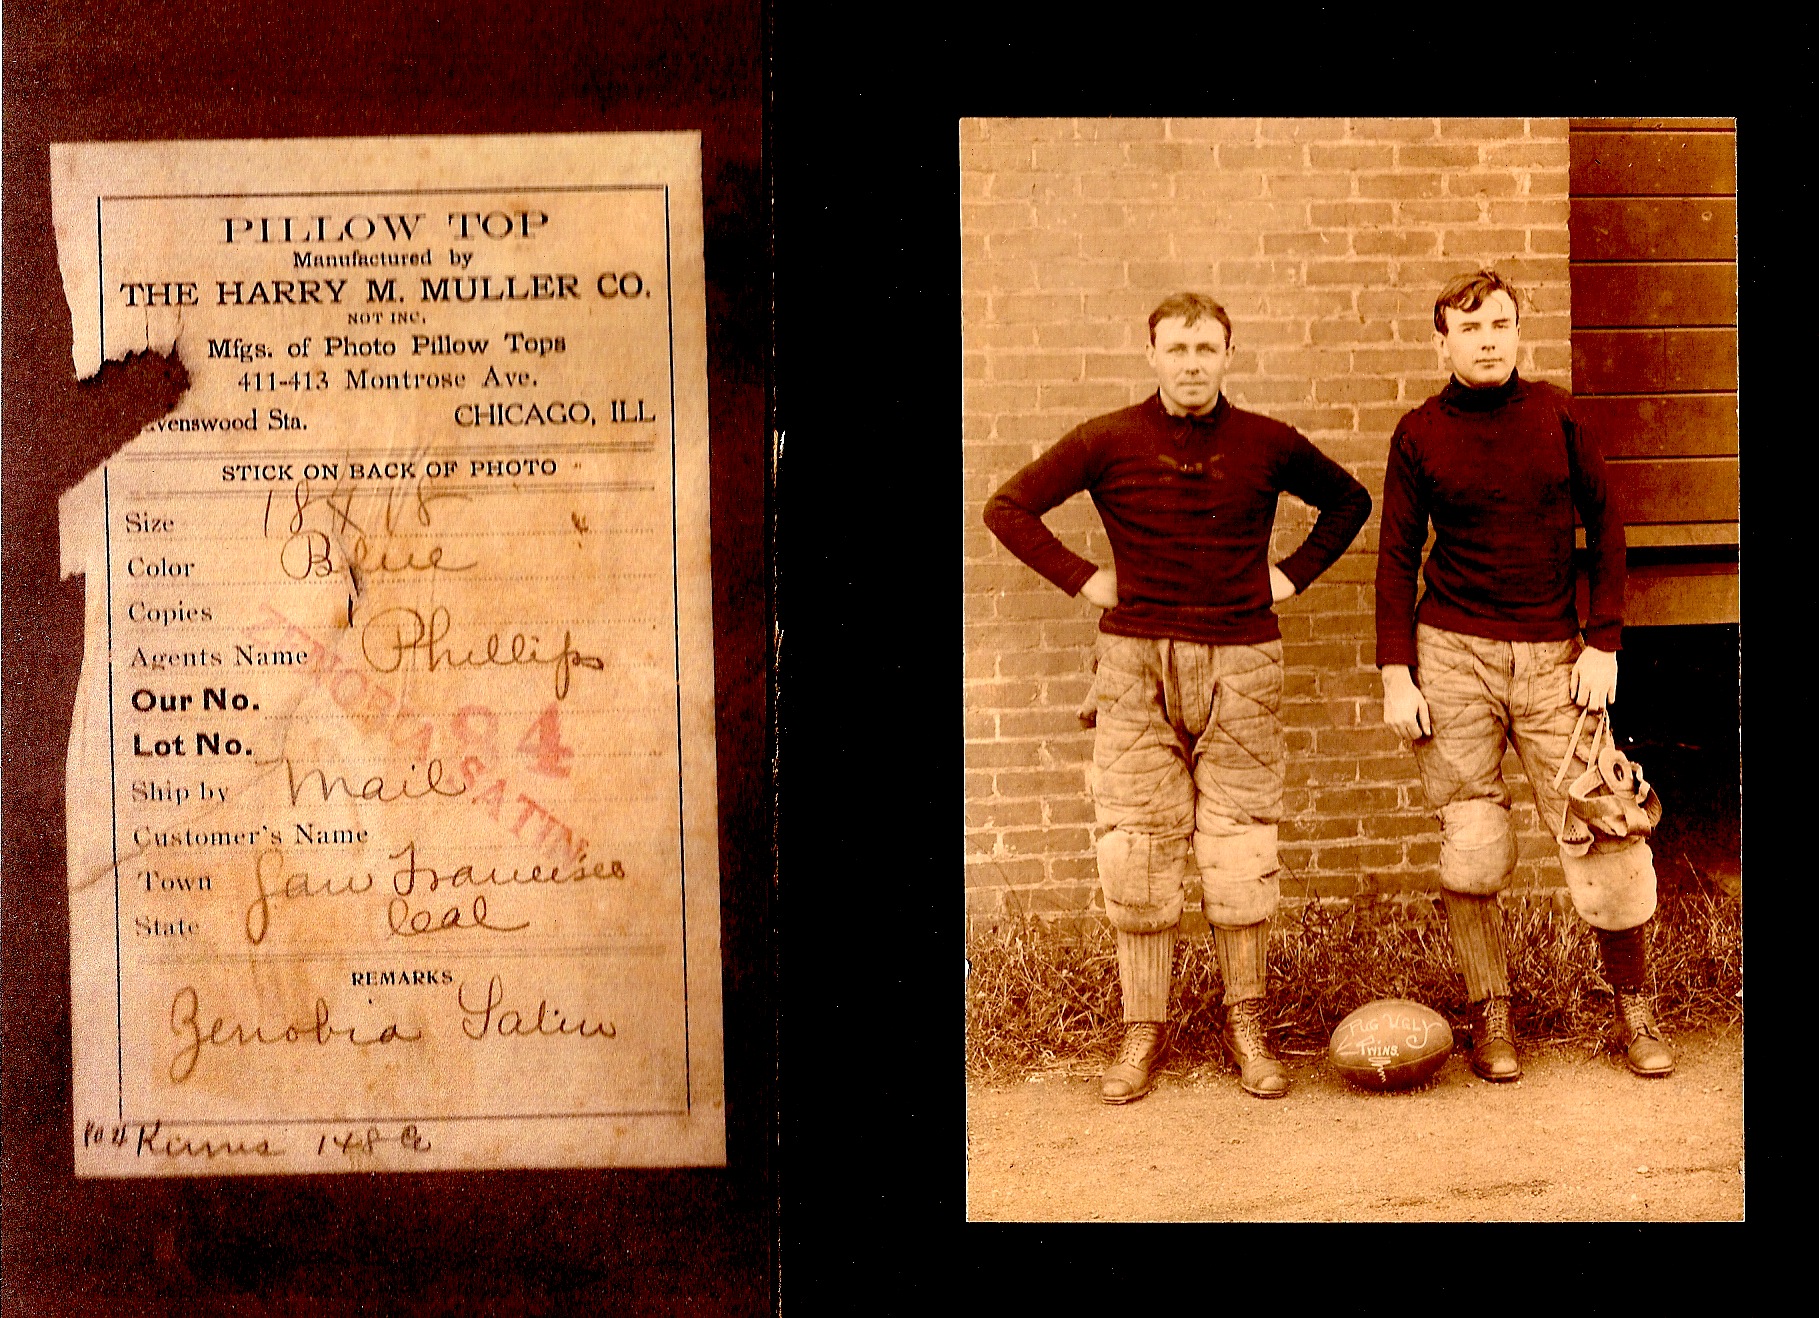 PILLOW TOP
Manufactured by
THE HARRY M. MULLER CO.
NOT INC.
Mfgs. of Photo Pillow Tops
411-413 Montrose Ave.
Sta. CHICAGO, ILL
STICK ON BACK OF PHOTO
Size 18 X 18
Color Blue
Copies 1
Agents Name Phillips
Our No.
Lot No. 94
Ship by Mail
Customer's Name
Town San Francisco
State Cal
ZENOBIA SATIN
REMARKS
Zenobia Satin
148
PUG UGLY
TWINS.